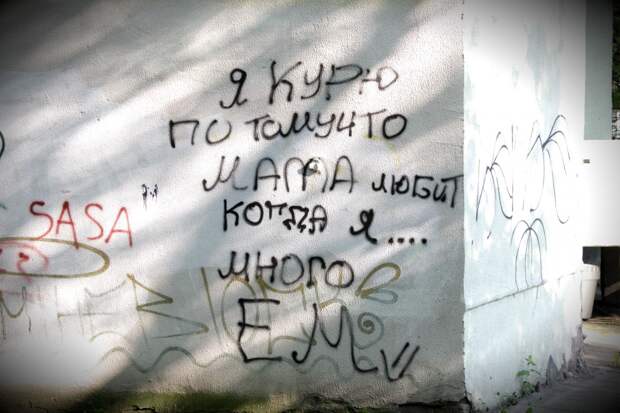 Я КУРЮ
ПО ТОМУЧТО
МАМА ЛЮБИТ
КОГДА Я....
МНОГО
ЕМ
SASA